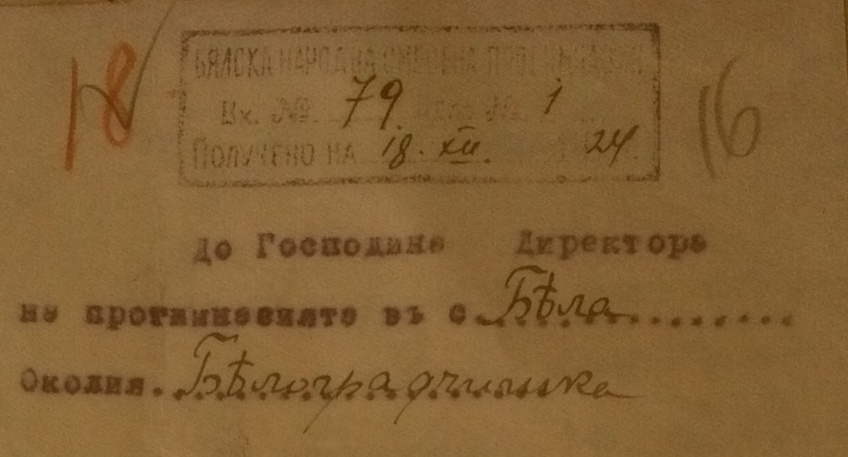 18
БЯЛСКА НАРОДНА СМЕСЕНА ПРОГИМНАЗИЯ
Вх. №. 79 № 1
ПОЛУЧЕНО НА 18. XII. 24.
16
До Господина Директора
на прогимназията въ с. Бѣла
Околия. Бѣлоградчишка